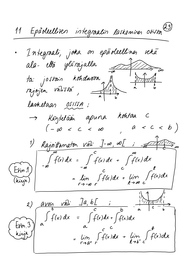 11 Epäoleellisen integraalin laskeminen osissa
21
• Integraali, joka on epäoleellinen sekä
ala- että ylärajalla
tai jossain kohdassa
rajojen välissä
lasketaan osissa :
→ Käytetään apuna kohtaa c
( -∞ < c < ∞ , a < c < b )
1) Rajoittamaton väli ]-∞, ∞[ :
∫ f(x)dx = ∫ f(x)dx + ∫ f(x)dx
= lim ∫ f(x)dx + lim ∫ f(x)dx
Esim 1
2) avoin väli ]a, b[ :
∫ f(x)dx = ∫ f(x)dx + ∫ f(x)dx
= lim ∫ f(x)dx + lim ∫ f(x)dx
Esim 3